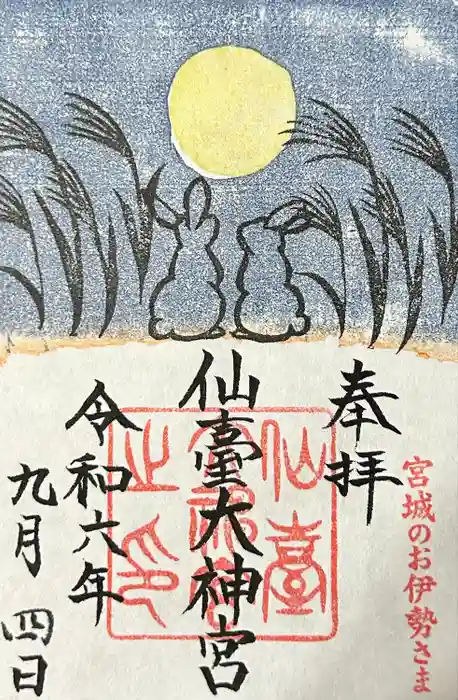 宮城のお伊勢さま
奉拝
仙臺大神宮
令和六年
九月 四日
仙臺
大神宮
之印